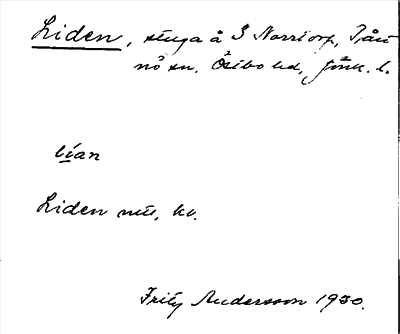 Liden, stuga å S Norrtorp, Trån
nö sn. Östbo hd, Jönk. l.
lían
Liden nu, kv.
Fritz Andersson 1930.